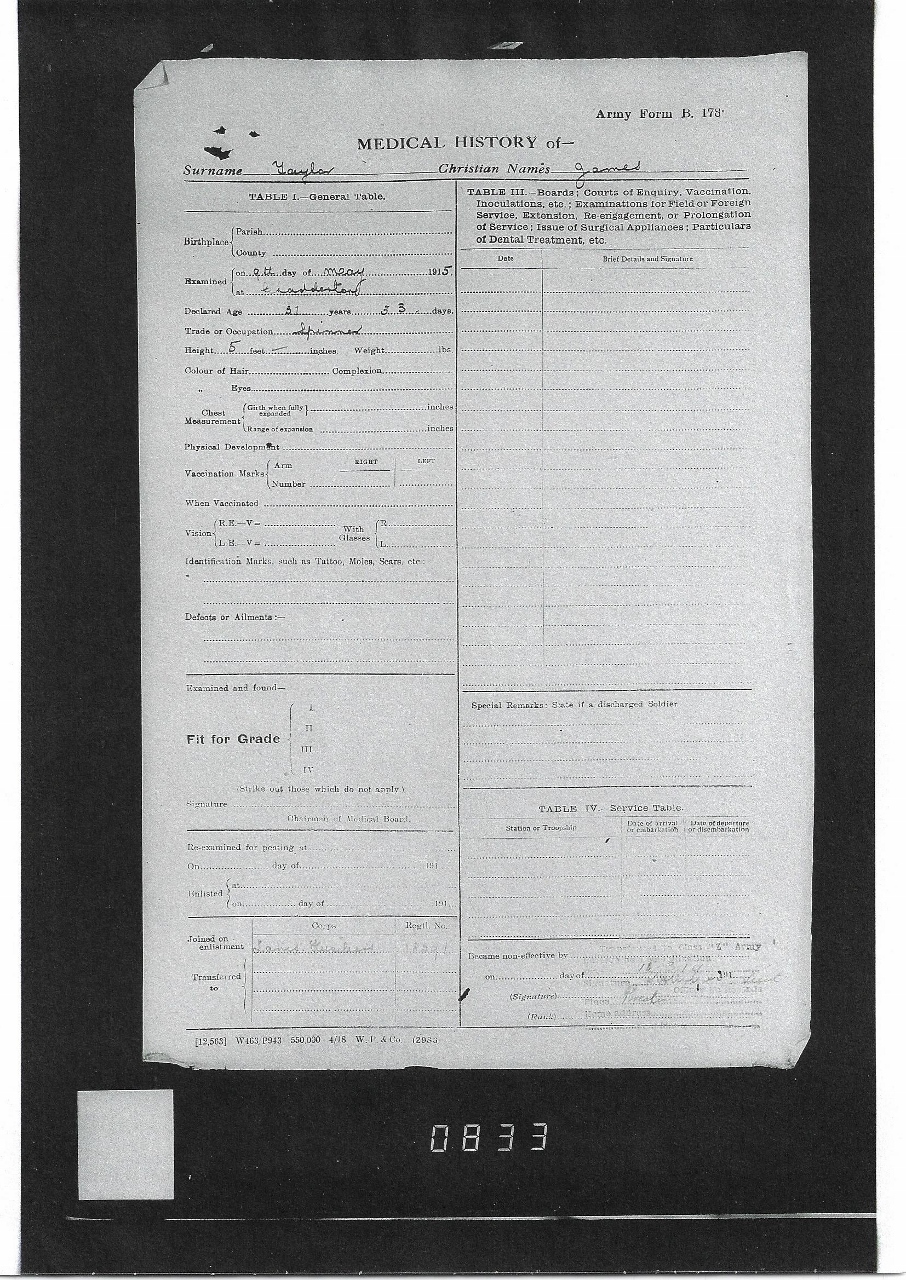 Army Form B. 178
MEDICAL HISTORY of—
Surname Taylor Christian Names James
TABLE I.—General Table.
Birthplace
Parish
County
Examined
on day of May 1915
at Chadderton
Declared Age 31 years 33 days.
Trade or Occupation Spinner
Height 5 feet — inches. Weight lbs
Colour of Hair Complexion
„ Eyes
Chest Measurement
Girth when fully expanded inches
Range of expansion inches
Physical Development
Vaccination Marks
Arm RIGHT LEFT
Number
When Vaccinated
Vision
R.E.—V= With Glasses R
L.E.—V= L
Identification Marks, such as Tattoo, Moles, Scars, etc.:
Defects or Ailments:—
Examined and found—
Fit for Grade
I
II
III
IV
(Strike out those which do not apply.)
Signature
Chairman of Medical Board.
Re-examined for posting at
On day of 191
Enlisted
at
on day of 191
Corps Regtl. No.
Joined on enlistment
Transferred to
[12,563] W463 P943 550,000 4/18 W. P. & Co.
TABLE III.—Boards; Courts of Enquiry, Vaccination,
Inoculations, etc.; Examinations for Field or Foreign
Service, Extension, Re-engagement, or Prolongation
of Service; Issue of Surgical Appliances; Particulars
of Dental Treatment, etc.
Date Brief Details and Signature
Special Remarks: State if a discharged Soldier
TABLE IV.—Service Table.
Station or Troopship Date of arrival or embarkation Date of departure or disembarkation
"Z" Army
Became non-effective by
on day of 191
(Signature) Preston
(Rank)
0833